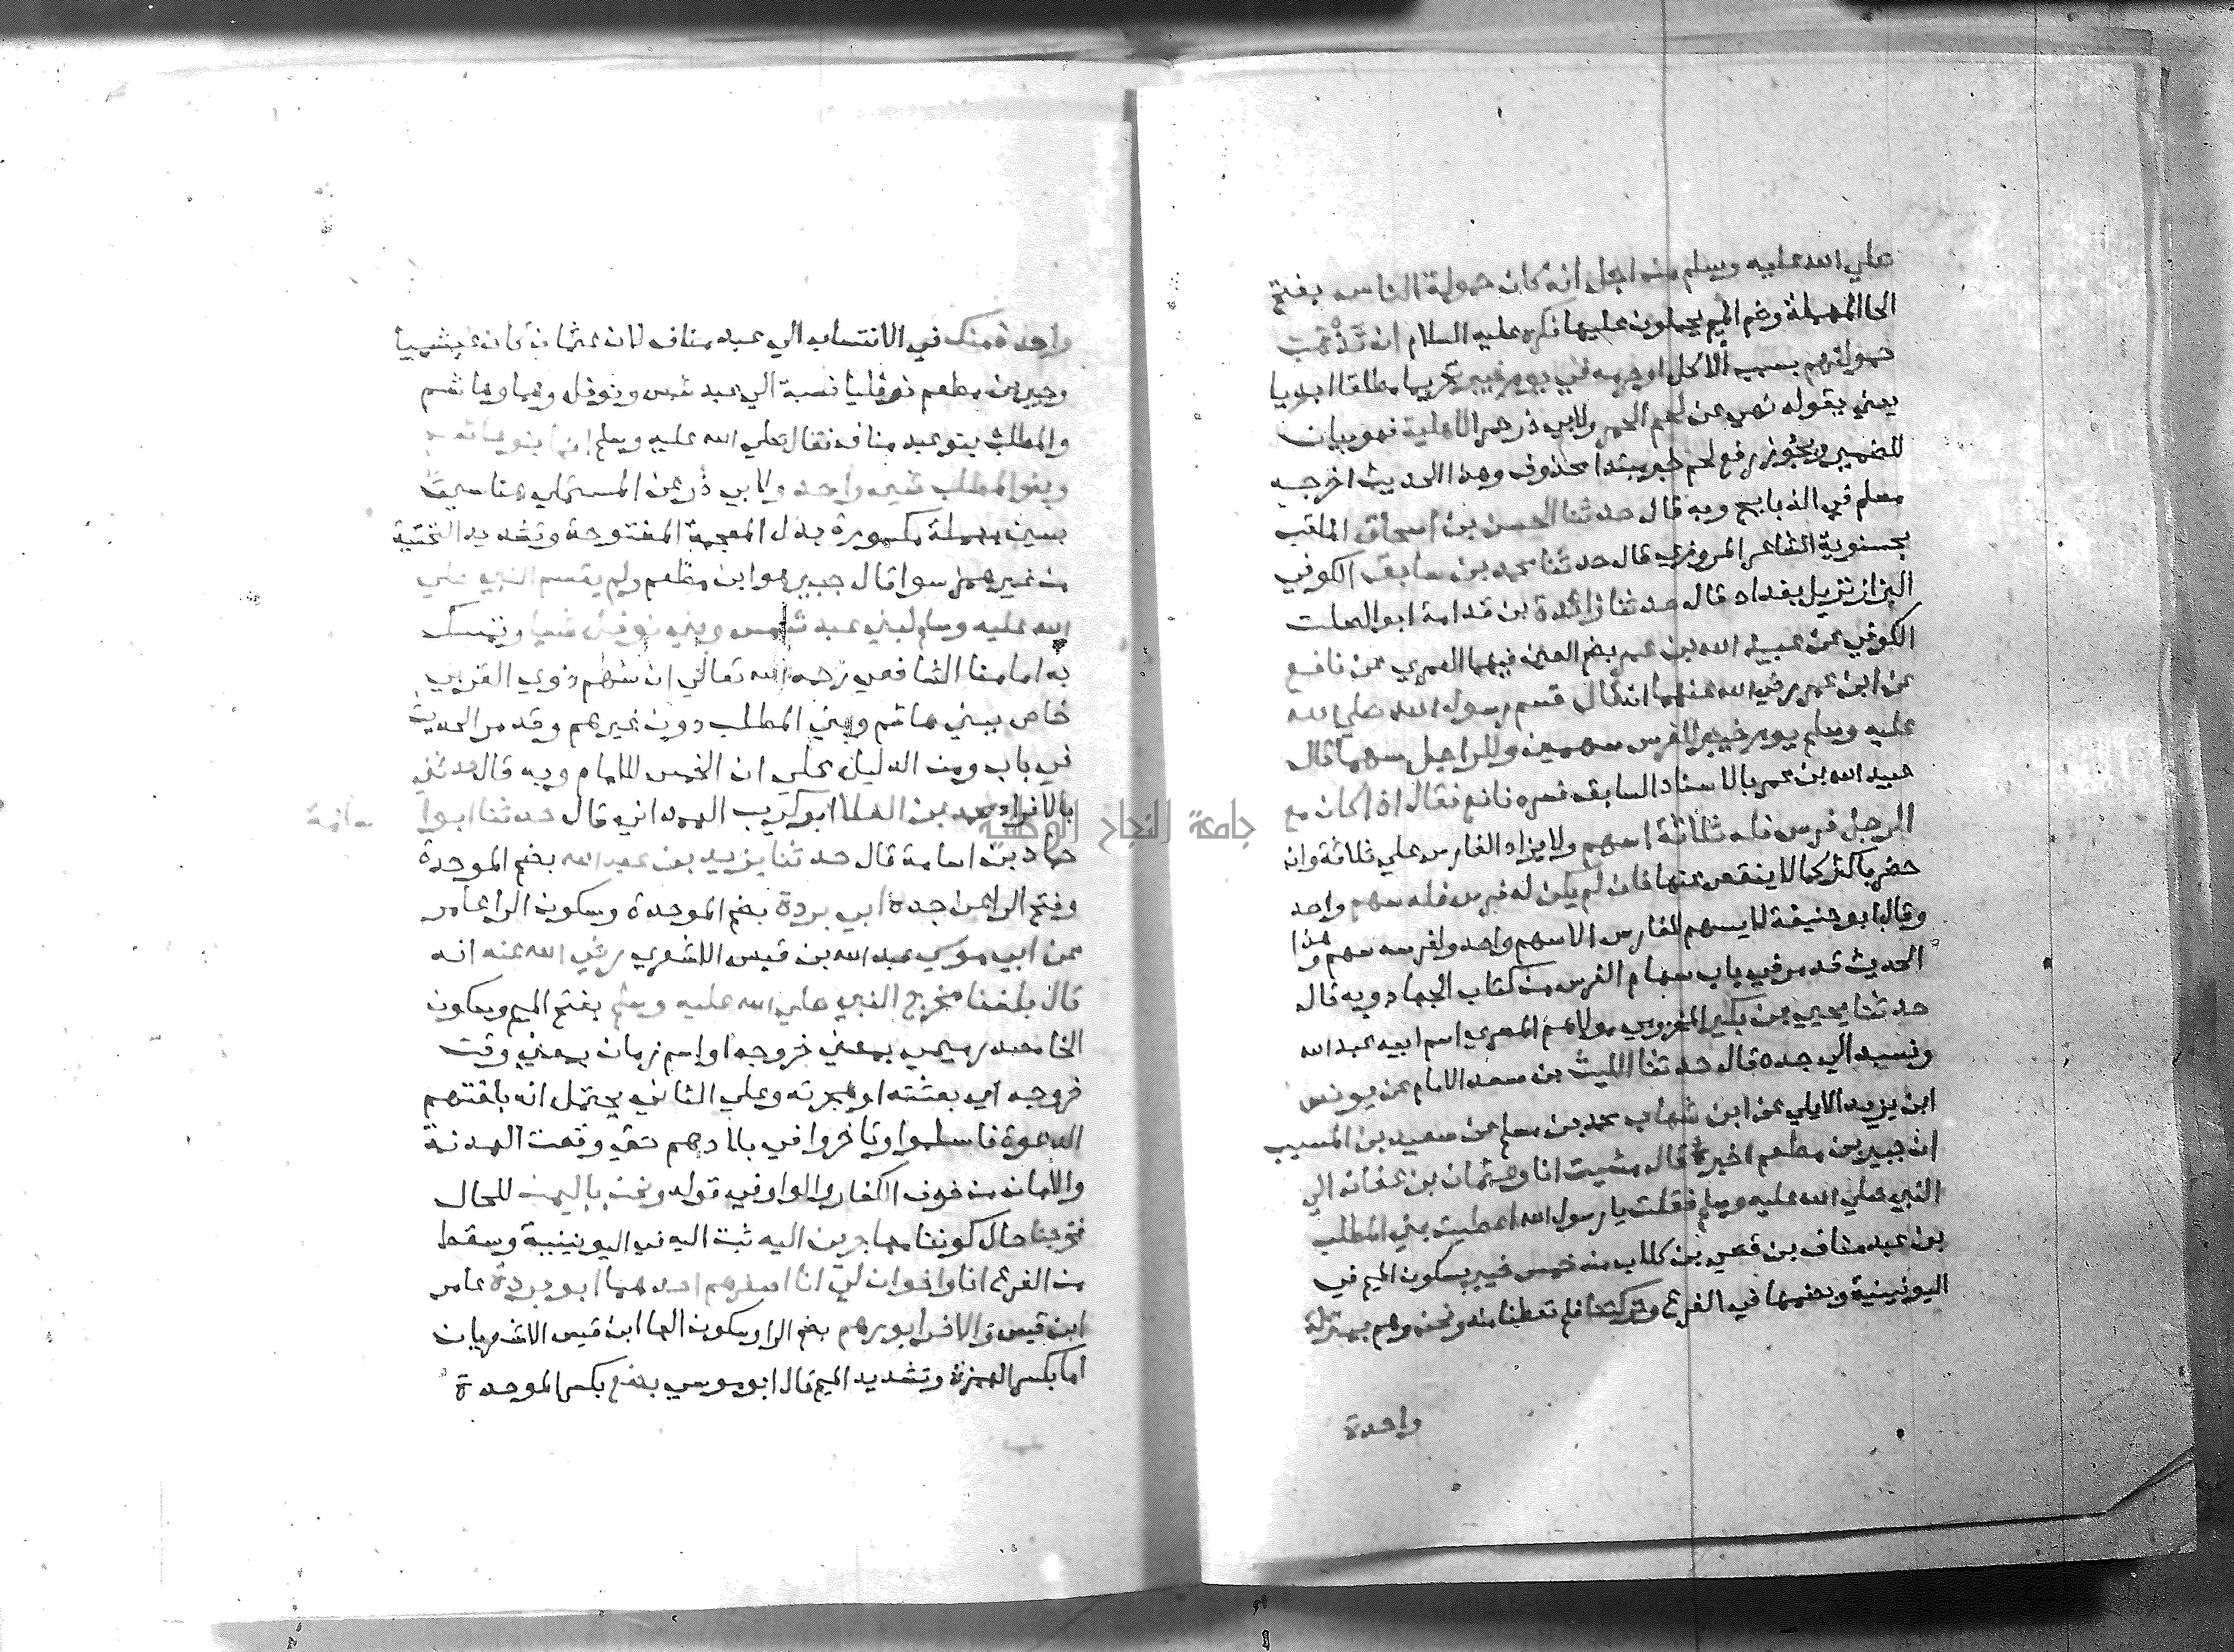 صلي الله عليه وسلم من اجل انه كان حمولة الناس بفتح
الحا المهملة وضم الميم يحملون عليها فكره عليه السلام ان تذهب
حمولتهم بسبب الاكل او حرمه في يوم خيبر تحريما مطلقا ابديا
يعني بقوله نهي عن لحم الحمر ولابي ذر حمر الاهلية فهو بيان
للضمير ويجوز رفع لحم خبر مبتدا محذوف وهذا الحديث اخرجه
مسلم في الذبايح وبه قال حدثنا الحسن بن اسحاق الملقب
بحسنوية الشاعر المروزي قال حدثنا محمد بن سابق الكوفي
البزاز نزيل بغداد قال حدثنا زائدة بن قدامة ابو الصلت
الكوفي عن عبيد الله بن عمر بضم العين فيهما العمري عن نافع
عن ابن عمر رضي الله عنهما انه قال قسم رسول الله صلي الله
عليه وسلم يوم خيبر للفرس سهمين وللراجل سهما قال
عبيد الله بن عمر بالاسناد السابق فسره نافع فقال اذا كان مع
الرجل فرس فله ثلاثة اسهم ولا يزاد الفارس علي ثلاثة وان
حضر باكثر كما لا ينقص عنها فان لم يكن له فرس فله سهم واحد
وقال ابو حنيفة لا يسهم للفارس الا سهم واحد ولفرسه سهم وهذا
الحديث قد مر في باب سهام الفرس من كتاب الجهاد وبه قال
حدثنا يحيي بن بكير المخزومي مولاهم المصري اسم ابيه عبد الله
ونسبه الي جده قال حدثنا الليث بن سعد الامام عن يونس
ابن يزيد الايلي عن ابن شهاب محمد بن مسلم عن سعيد بن المسيب
ان جبير بن مطعم اخبره قال مشيت انا وعثمان بن عفان الي
النبي صلي الله عليه وسلم فقلت يا رسول الله اعطيت بني المطلب
بن عبد مناف بن قصي بن كلاب من خمس خيبر بسكون الميم في
اليونينية وبضمها في الفرع وتركتنا فلم تعطنا منه ونحن وهم بمنزلة
واحدة
واحدة منك في الانتساب الي عبد مناف لان عثمان كان عبشميا
وجبير بن مطعم نوفليا نسبة الي عبد شمس ونوفل وهما وهاشم
والمطلب بنو عبد مناف فقال صلي الله عليه وسلم انما بنو هاشم
وبنو المطلب شي واحد ولابي ذر عن المستملي هنا سي
بسين مهملة مكسورة بدل المعجمة المفتوحة وتشديد التحتية
من غير همز سوا قال جبير هو ابن مطعم ولم يقسم النبي صلي
الله عليه وسلم لبني عبد شمس وبني نوفل شيا وتمسك
به امامنا الشافعي رحمه الله تعالي ان سهم ذوي القربي
خاص ببني هاشم وبني المطلب دون غيرهم وقد مر الحديث
في باب ومن الدليل علي ان الخمس للامام وبه قال حدثني
بالافراد محمد بن العلا ابو كريب الهمداني قال حدثنا ابوا
حماد بن اسامة قال حدثنا بريد بن عبد الله بضم الموحدة
وفتح الرا عن جده ابي بردة بضم الموحدة وسكون الرا عامر
عن ابي موسي عبد الله بن قيس الاشعري رضي الله عنه انه
قال بلغنا مخرج النبي صلي الله عليه وسلم بفتح الميم وسكون
الخا مصدر ميمي بمعني خروجه او اسم زمان بمعني وقت
خروجه اي بعثته او هجرته وعلي الثاني يحتمل انه بلغتهم
الدعوة فاسلموا وتاخروا في بلادهم حتي وقعت الهدنة
والامان من خوف الكفار والواو في قوله ونحن باليمن للحال
فخرجنا حال كوننا مهاجرين اليه ثبت اليه في اليونينية وسقط
من الفرع انا واخوان لي انا اصغرهم احدهما ابو بردة عامر
ابن قيس والاخر ابو رهم بضم الرا وسكون الها ابن قيس الاشعريان
اما بكسر الهمزة وتشديد الميم قال ابو موسي بضع بكسر الموحدة
جامعة النجاح الوطنية